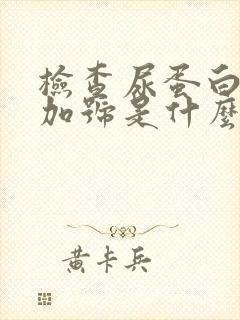 檢查尿蛋白
加號是什麼
黃卡兵